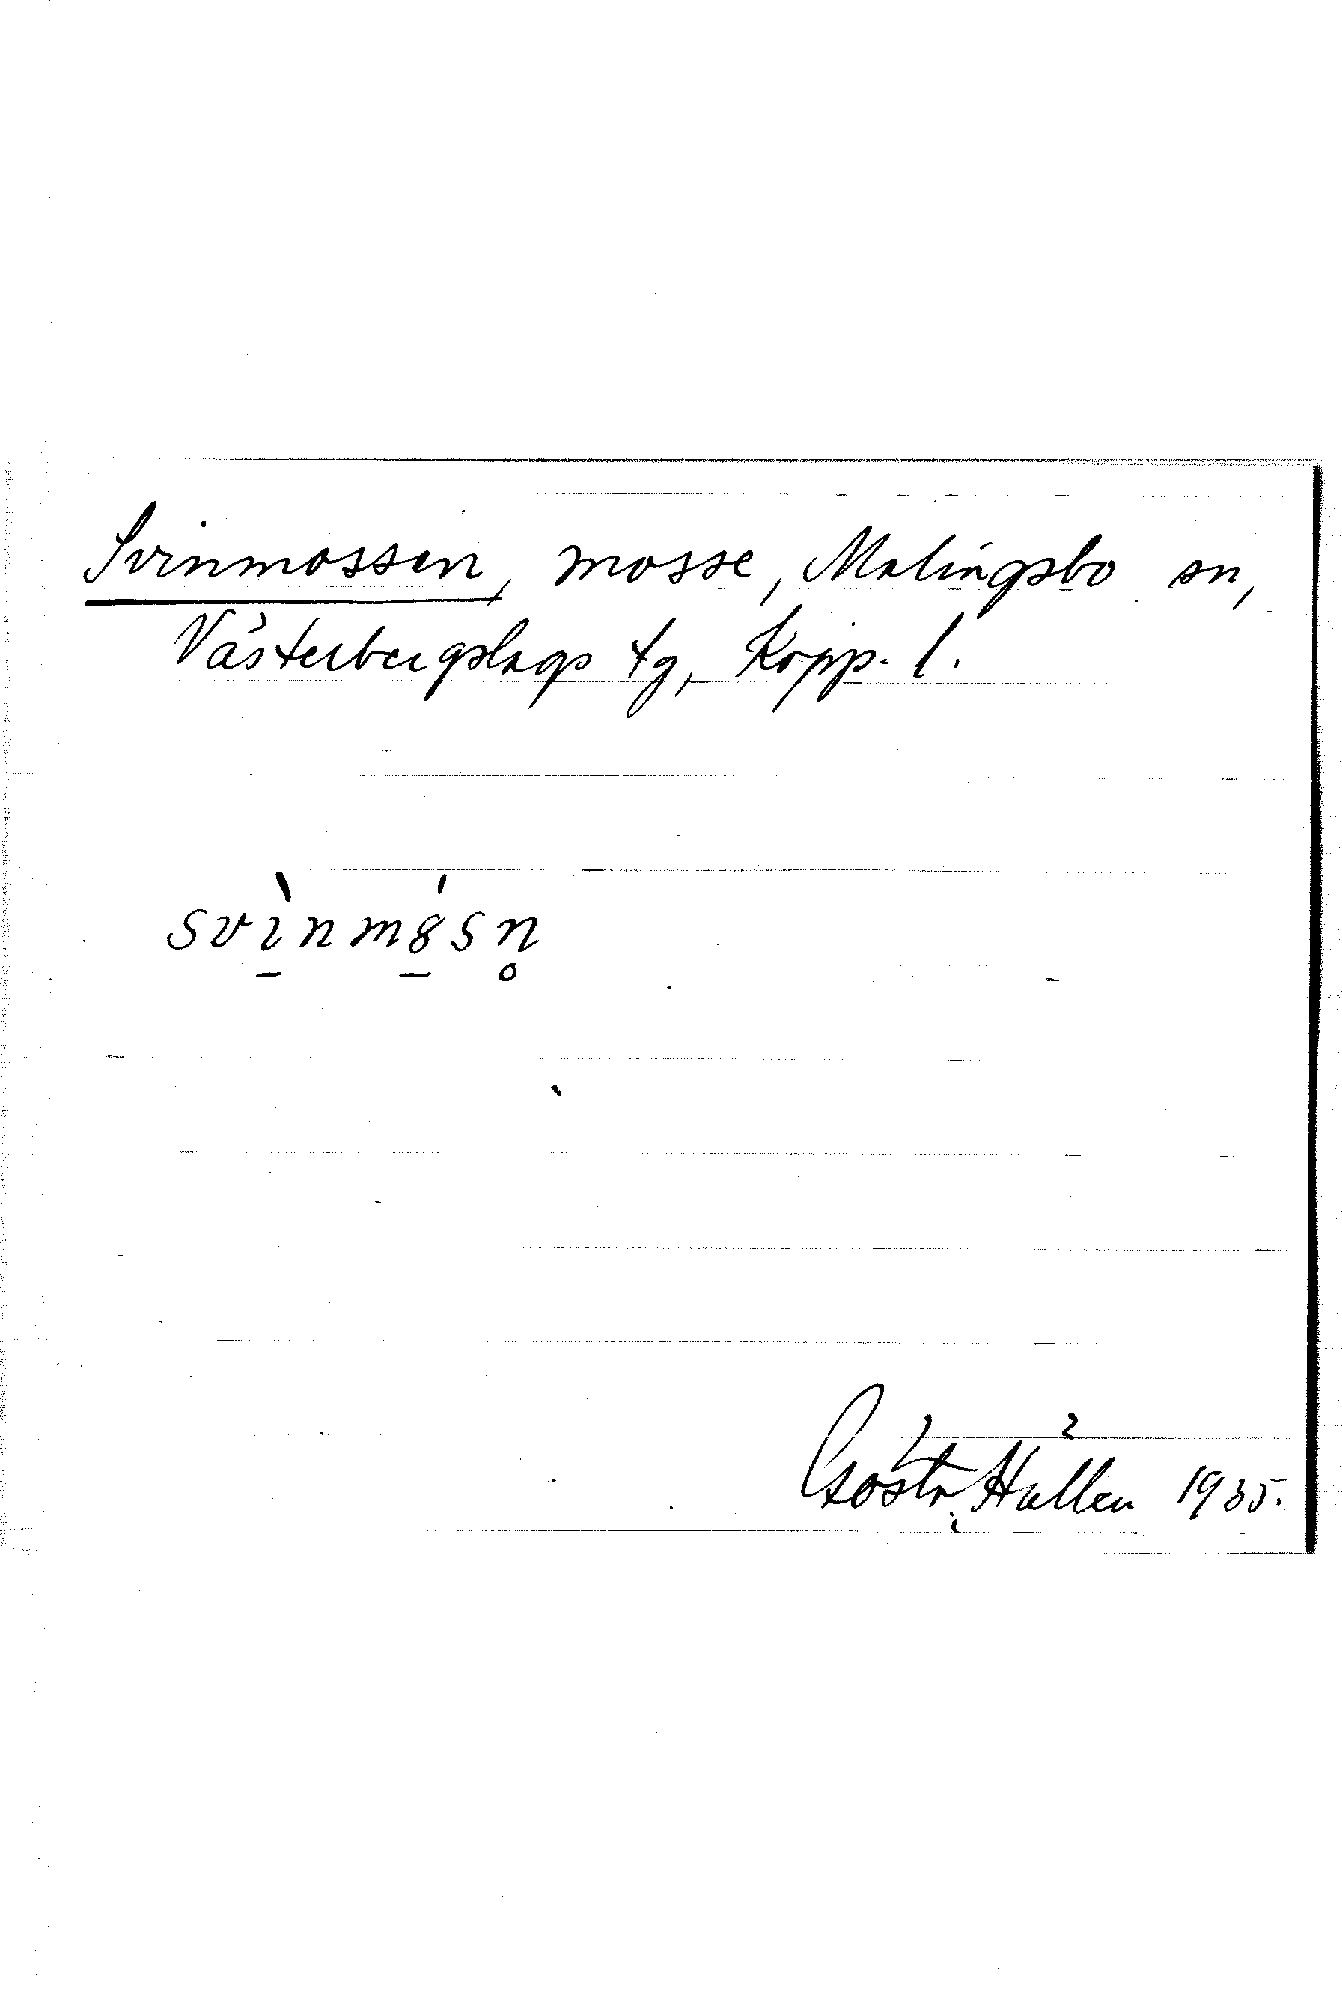 Svinmossen, mosse, Malingsbo sn,
Västerbergslags tg, Kopp. l.
svı̱̀nmȣ̱́sn̥
Gösta Hallen 1935.